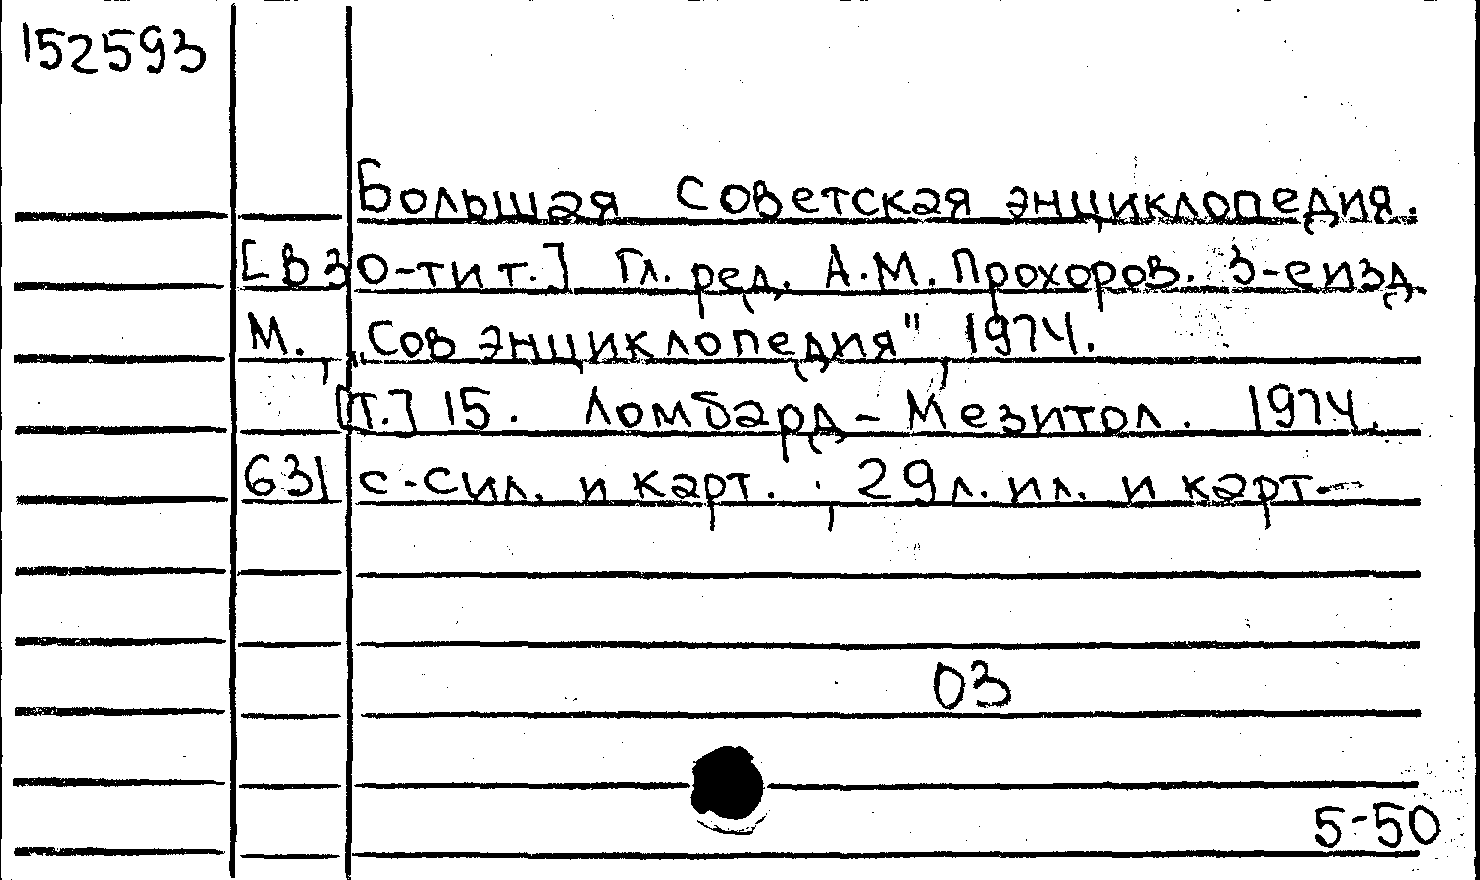 152593
Большая Советская энциклопедия.
[В 30-ти т.] Гл. ред. А.М. Прохоров. 3-е изд.
М., „Сов энциклопедия", 1974.
[т.] 15. Ломбард - Мезитол. 1974.
631 с. с ил. и карт.; 29 л. ил. и карт-
03
5-50